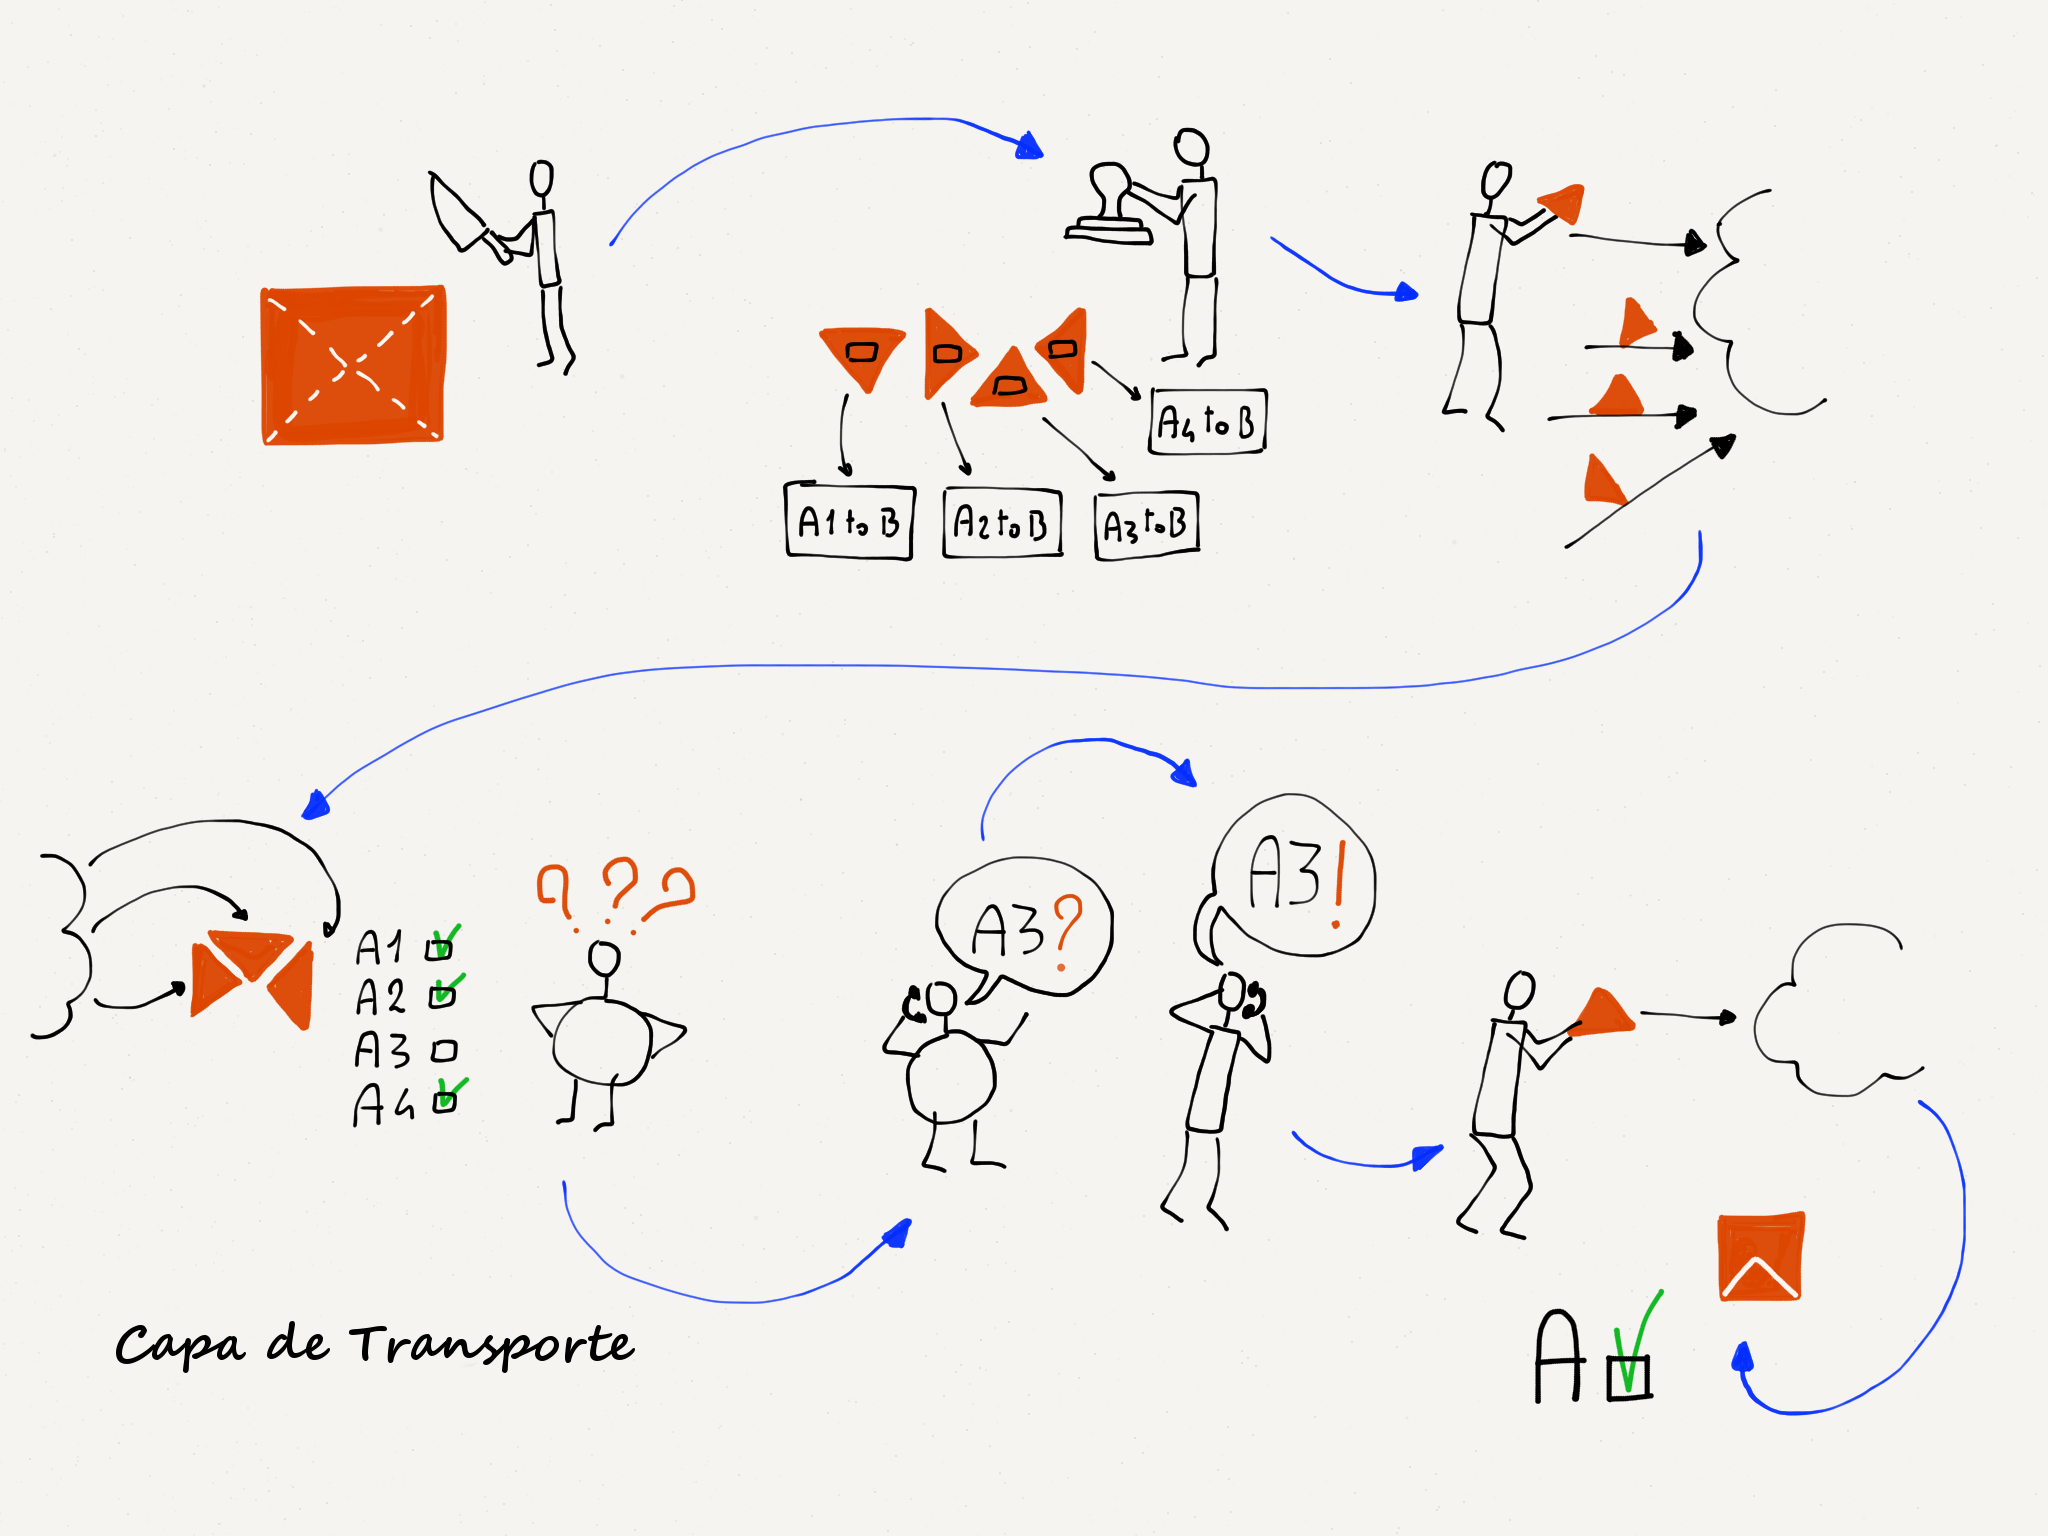 A1 to B
A2 to B
A3 to B
A4 to B
A1
A2
A3
A4
???
A3?
A3!
A
Capa de Transporte